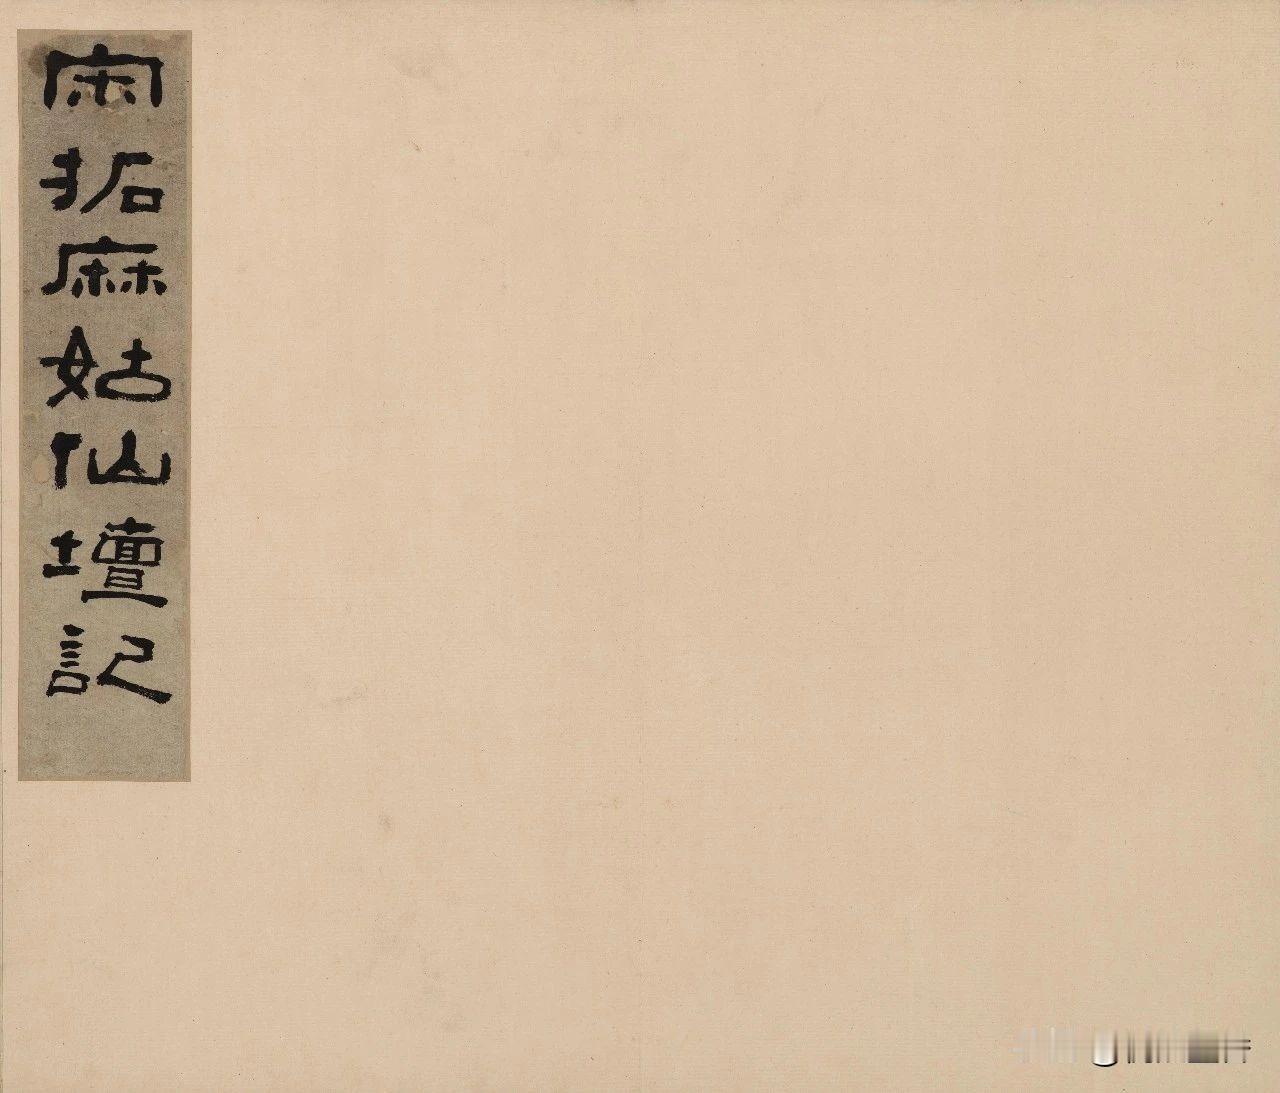 宋拓麻姑仙壇記